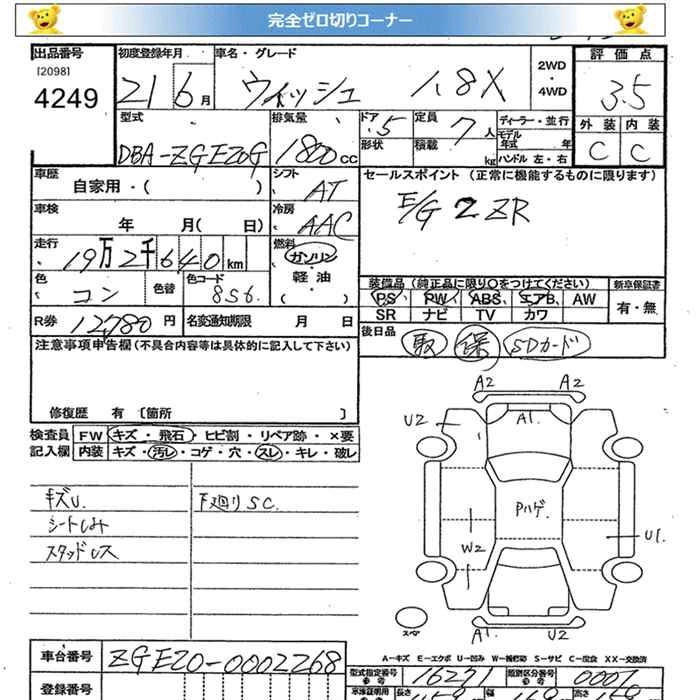 完全ゼロ切りコーナー
出品番号 [2098] 4249
初度登録年月 21 6 月
車名・グレード ウィッシュ 1.8X
2WD ・ 4WD
評価点 3.5
外装 C 内装 C
型式 DBA-ZGE20G
排気量 1800 cc
ドア 5 形状
定員 7 人 積載 kg
ディーラー・並行
モデル年式 年
ハンドル 左・右
車歴 自家用・( )
シフト AT
セールスポイント (正常に機能するものに限ります)
E/G 2ZR
車検 年 月( 日)
冷房 AAC
走行 19万2千640 km
燃料 ガソリン ・ 軽油 ( )
色 コン 色替 色コード 8S6.
装備品 (純正品に限り○をつけてください) 新車保証書
PS PW ABS エアB AW 有・無
SR ナビ TV カワ
R券 12780 円 名変通知期限 月 日
後日品 取 保 SDカード
注意事項申告欄 (不具合内容等は具体的に記入して下さい)
修復歴 有 [箇所 ]
検査員 FW キズ・飛石・ヒビ割・リペア跡・×要
記入欄 内装 キズ・汚レ・コゲ・穴・スレ・キレ・破レ
キズU. 下廻りSC.
シートしみ
スタッドレス
A2 A2
U2 A1.
Pハゲ.
W2 U1.
スペア A1. U2
A-キズ E-エクボ U-凹み W-補修跡 S-サビ C-腐食 XX-交換済
車台番号 ZGE20-0002268
型式指定番号 16271 類別区分番号 0007
登録番号
長さ 幅 高さ